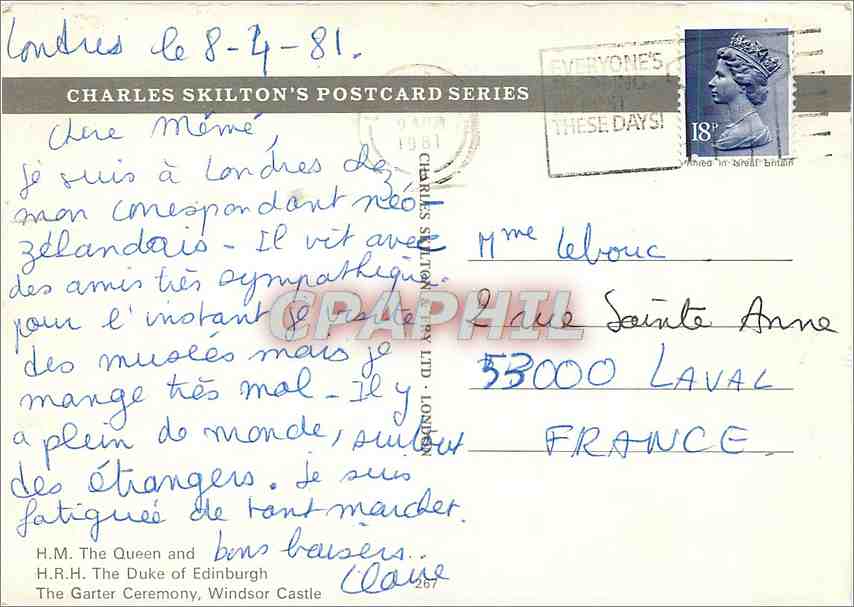 Londres le 8-4-81.
CHARLES SKILTON'S POSTCARD SERIES
EVERYONE'S
THESE DAYS!
1981
18P
Chere Mémé,
je suis à Londres chez
mon correspondant néo-
zélandais - Il vit avec
des amis très sympathique.
pour l'instant je visite
des musées mais je
mange très mal - Il y
a plein de monde, surtout
des étrangers. je suis
fatiguée de tant marcher.
bons baisers..
Claire
CHARLES SKILTON & FRY LTD · LONDON
CPAPHIL
Mme Lebouc
2 rue Sainte Anne
53000 LAVAL
FRANCE
H.M. The Queen and
H.R.H. The Duke of Edinburgh
The Garter Ceremony, Windsor Castle
267